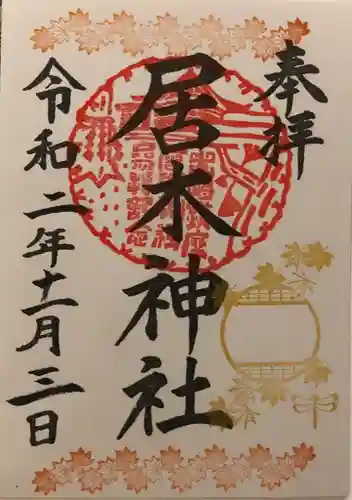 奉拝
居木神社
令和二年十一月三日